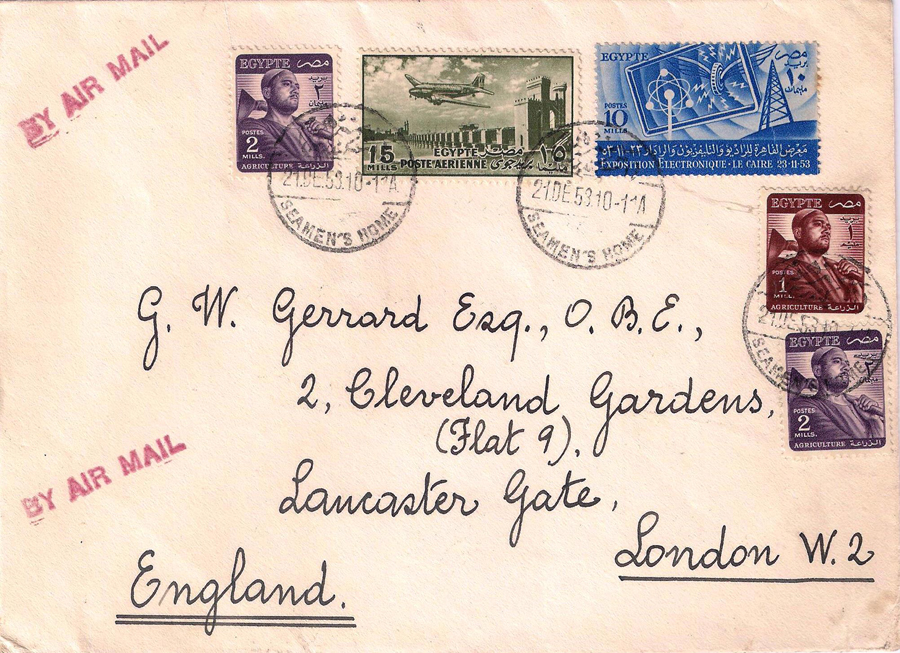 BY AIR MAIL
EGYPTE مصر
بريد
٢
مليمات
POSTES
2
MILLS.
AGRICULTURE الزراعة
15
MILLS
EGYPTE مصر
POSTE AERIENNE بريد جوى
١٥
EGYPTE مصر
بريد
١٠
مليمات
POSTES
10
MILLS
معرض القاهرة للراديو والتليفزيون والرادار ٢٣-١١-٥٣
EXPOSITION ELECTRONIQUE · LE CAIRE 23-11-53
21.DE.53.10-11A
SEAMEN'S HOME
21.DE.53.10-11A
SEAMEN'S HOME
EGYPTE مصر
بريد
١
POSTES
1
MILL.
AGRICULTURE الزراعة
21.DE.53.10
SEAMEN'S HOME
EGYPTE مصر
٢
POSTES
2
MILLS.
AGRICULTURE الزراعة
G. W. Gerrard Esq., O.B.E.,
2, Cleveland Gardens,
(Flat 9).
Lancaster Gate,
London W.2
England.
BY AIR MAIL